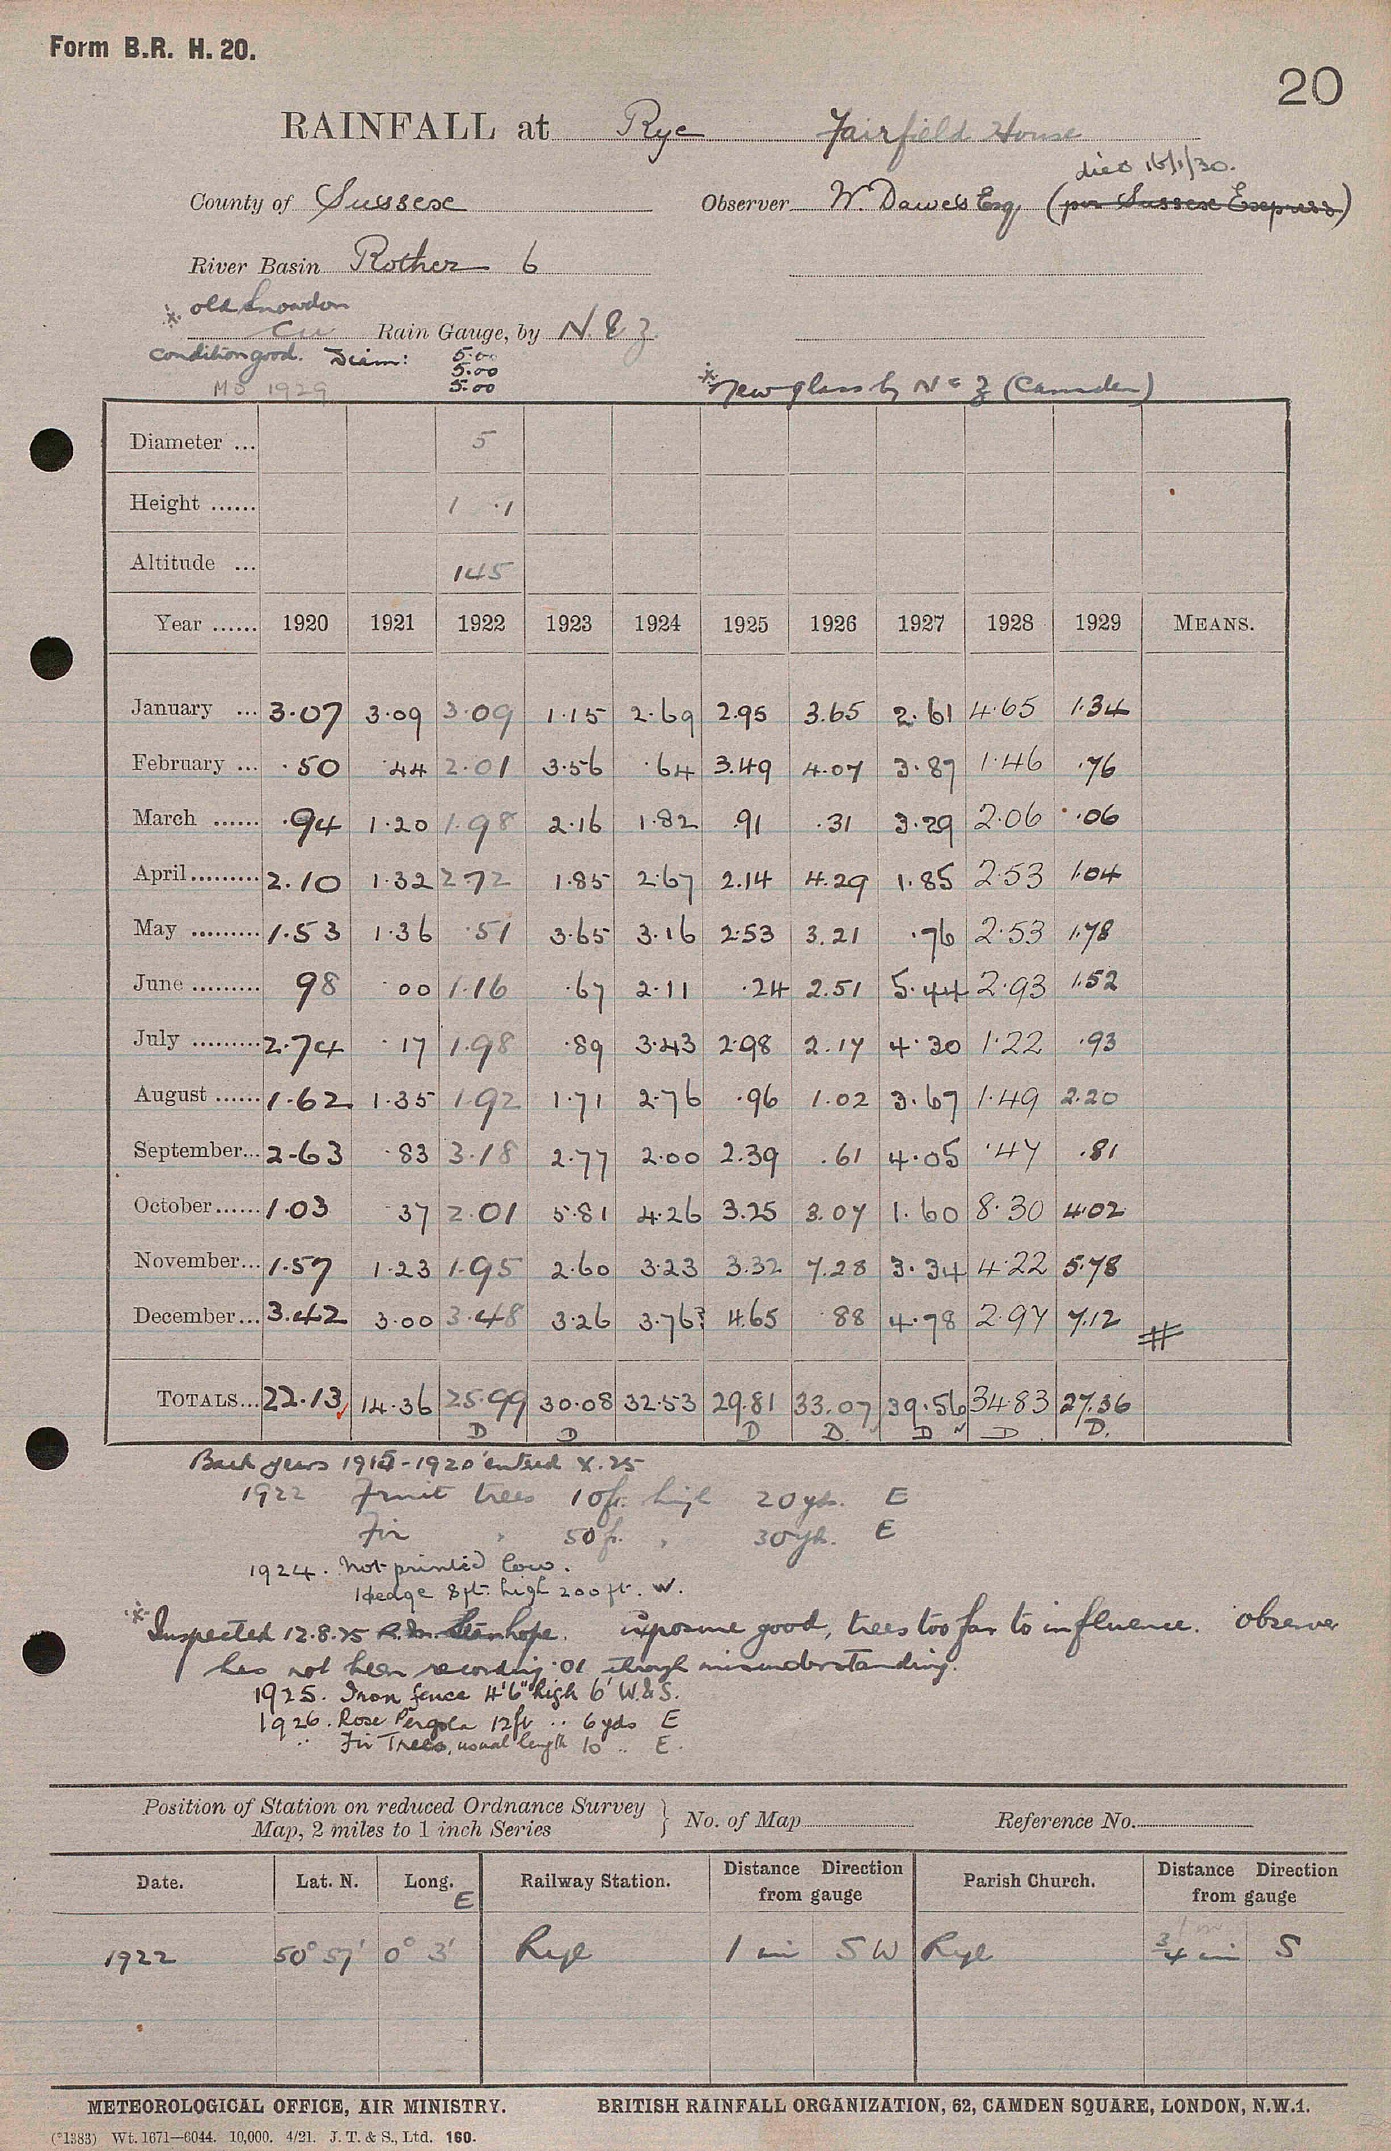 Form B.R. H. 20.
20
RAINFALL at Rye Fairfield House
died 16/1/30.
County of Sussex Observer W. Dawes Esq (per Sussex Express)
River Basin Rother 6
* old Snowdon
Cu Rain Gauge, by N & Z
condition good. Diam: 5.00
5.00
MO 1929 5.00
* New glass by N & Z (Camden)
Diameter ... 5
Height ...... 1 .1
Altitude ... 145
Year ...... 1920 1921 1922 1923 1924 1925 1926 1927 1928 1929 MEANS.
January ... 3.07 3.09 3.09 1.15 2.69 2.95 3.65 2.61 4.65 1.34
February ... .50 .44 2.01 3.56 .64 3.49 4.07 3.87 1.46 .76
March ...... .94 1.20 1.98 2.16 1.82 .91 .31 3.29 2.06 .06
April ......... 2.10 1.32 2.72 1.85 2.67 2.14 4.29 1.85 2.53 1.04
May ......... 1.53 1.36 .51 3.65 3.16 2.53 3.21 .76 2.53 1.78
June ......... 98 .00 1.16 .67 2.11 .24 2.51 5.44 2.93 1.52
July ......... 2.74 .17 1.98 .89 3.43 2.98 2.17 4.30 1.22 .93
August ...... 1.62 1.35 1.92 1.71 2.76 .96 1.02 3.67 1.49 2.20
September... 2.63 .83 3.18 2.77 2.00 2.39 .61 4.05 .47 .81
October...... 1.03 37 2.01 5.81 4.26 3.25 3.07 1.60 8.30 4.02
November... 1.57 1.23 1.95 2.60 3.23 3.32 7.28 3.34 4.22 5.78
December... 3.42 3.00 3.48 3.26 3.76? 4.65 .88 4.78 2.97 7.12 #
TOTALS... 22.13 14.36 25.99 30.08 32.53 29.81 33.07 39.56 34.83 27.36
D D D D. D D D.
Back years -1920 entered X.25
1922 Fruit trees 10 ft. high 20 yds. E
Fir " 50 ft. " 30 yds. E
1924. Not printed low.
Hedge 8 ft. high 200 ft. W.
* Inspected 12.8.25 exposure good, trees too far to influence. Observer
has not been recording .01 through misunderstanding.
1925. Iron fence 4'6" high 6' W. & S.
1926. Rose Pergola 12 ft .. 6 yds E
.. Fir Trees, usual length 10 .. E.
Position of Station on reduced Ordnance Survey
Map, 2 miles to 1 inch Series } No. of Map Reference No.
Date. Lat. N. Long. E Railway Station. Distance Direction from gauge Parish Church. Distance Direction from gauge
1 m
1922 50° 57' 0° 3' Rye 1 m SW Rye 3/4 m S
METEOROLOGICAL OFFICE, AIR MINISTRY. BRITISH RAINFALL ORGANIZATION, 62, CAMDEN SQUARE, LONDON, N.W.1.
(*1383) Wt. 1671—6044. 10,000. 4/21. J. T. & S., Ltd. 160.